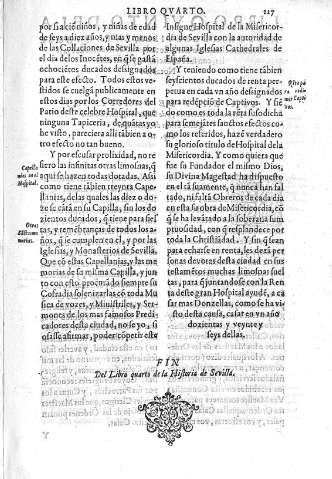 LIBRO QVARTO. 127
por si a siē niños, y niñas de edad
de seys a diez años, y mas y menos
de las Collaciones de Sevilla por
el dia de los Inocētes, en q̃ se gastā
ochociētos ducados designados
para este efecto. Todos estos ves
tidos se cuelgā publicamente en
estos dias por los Corredores del
Patio deste celebre Hospital, que
ninguna Tapiceria, de quātas yo
he visto, pareciera alli tābien a q̃ro
efecto no tan bueno.
Capella
nias en el
Hospital.
Y por escusar prolixidad, no re
fiero las infinitas otras limosnas, q̃
aqui se hazen todas dotadas. Assi
como tiene tābien treynta Cape
llanias, de las quales las diez o do
ze se cātā en su Capilla, sin los do
zientos ducados, q̃ tiene para fies
Otras
memorias.
tas, y remēbranças de todos los a
ños, q̃ se cumplen en el, y por las
Iglesias, y Monasterios de Sevilla.
Que cō estas Capellanias, y las me
morias de su misma Capilla, y jun
to con esto procurādo siempre su
Cofradia solenizarlas cō toda Mu
sica de vozes, y Ministriles, y Ser
mones de los mas famosos Predi
cadores desta ciudad, no se yo, si
osasse afirmar, poder cōpetir este
insigne Hospital de la Misericor-
dia de Sevilla con la autoridad de
algunas Iglesias Cathedrales de
España.
Otra pa
ra redē
mir Capti
vos.
Y teniendo como tiene tābien
seyscientos ducados de renta per
petua en cada vn año designados
para redēpciō de Captivos. Y siē
do como es toda la rēta so dicha
para semejantes sanctos efectos co
mo los referidos, hazē verdadero
su glorioso titulo de Hospital de la
Misericordia. Y como quiera que
fue su Fundador el mismo Dios,
su Divina Magestad ha dispuesto
en el tā suamente, q̃ nunca han fal
tado, ni faltā Obreros de cada dia
en esta su obra de Misericordia, cō
q̃ se ha levātado a la soberana sum
ptuosidad, con q̃ resplandece por
toda la Christiādad. Y sin q̃ sean
para echarse en renta, les dexā per
sonas devotas desta ciudad en sus
testamētos muchas limosnas suel
tas, para q̃ juntandose con la Ren
ta deste gran Hospital ayude, a ca
sar mas Donzellas, como se ha vis
to desta causa, casar en vn año
dozientas y veynte y
seys dellas.
FIN
Del Libro quarto de la Historia de Sevilla.